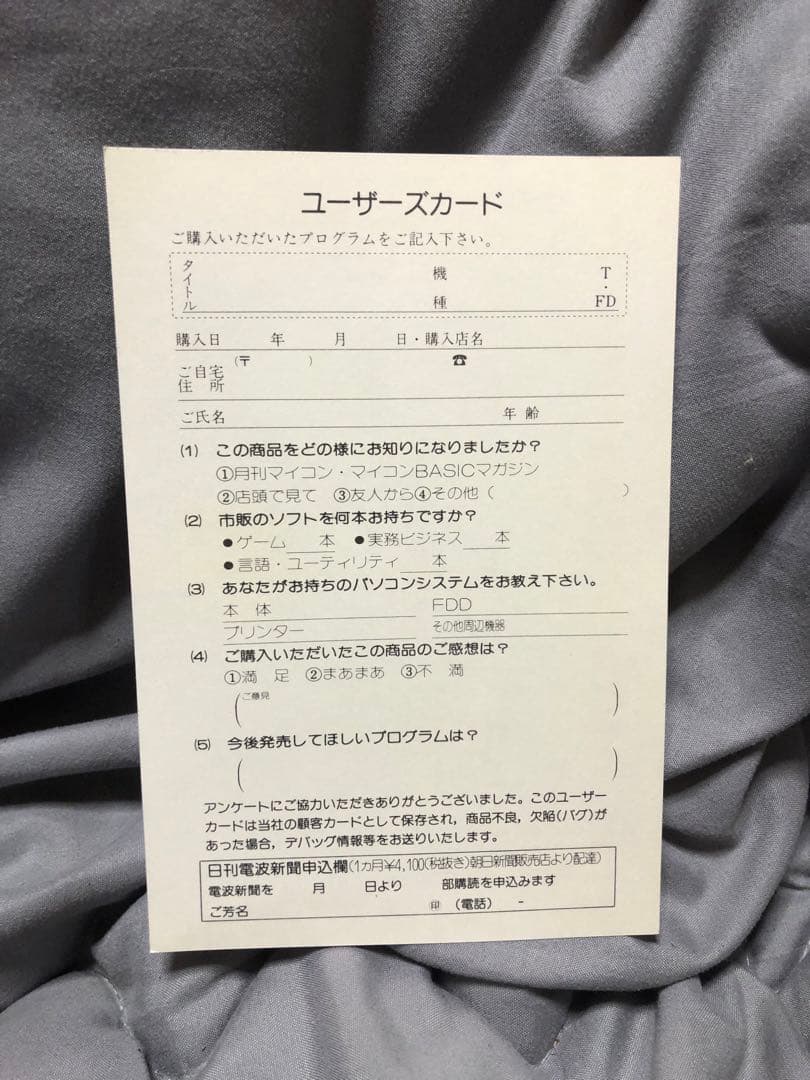 ユーザーズカード
ご購入いただいたプログラムをご記入下さい。
タイトル 機種 T・FD
購入日 年 月 日・購入店名
ご自宅住所 (〒 ) ☎
ご氏名 年齢
(1) この商品をどの様にお知りになりましたか?
①月刊マイコン・マイコンBASICマガジン
②店頭で見て ③友人から④その他 ( )
(2) 市販のソフトを何本お持ちですか?
●ゲーム 本 ●実務ビジネス 本
●言語・ユーティリティ 本
(3) あなたがお持ちのパソコンシステムをお教え下さい。
本体 FDD
プリンター その他周辺機器
(4) ご購入いただいたこの商品のご感想は?
①満 足 ②まあまあ ③不 満
(ご意見 )
(5) 今後発売してほしいプログラムは?
( )
アンケートにご協力いただきありがとうございました。このユーザー
カードは当社の顧客カードとして保存され,商品不良,欠陥(バグ)が
あった場合,デバッグ情報等をお送りいたします。
日刊電波新聞申込欄(1ヵ月¥4,100(税抜き)朝日新聞販売店より配達)
電波新聞を 月 日より 部購読を申込みます
ご芳名 ㊞ (電話) -